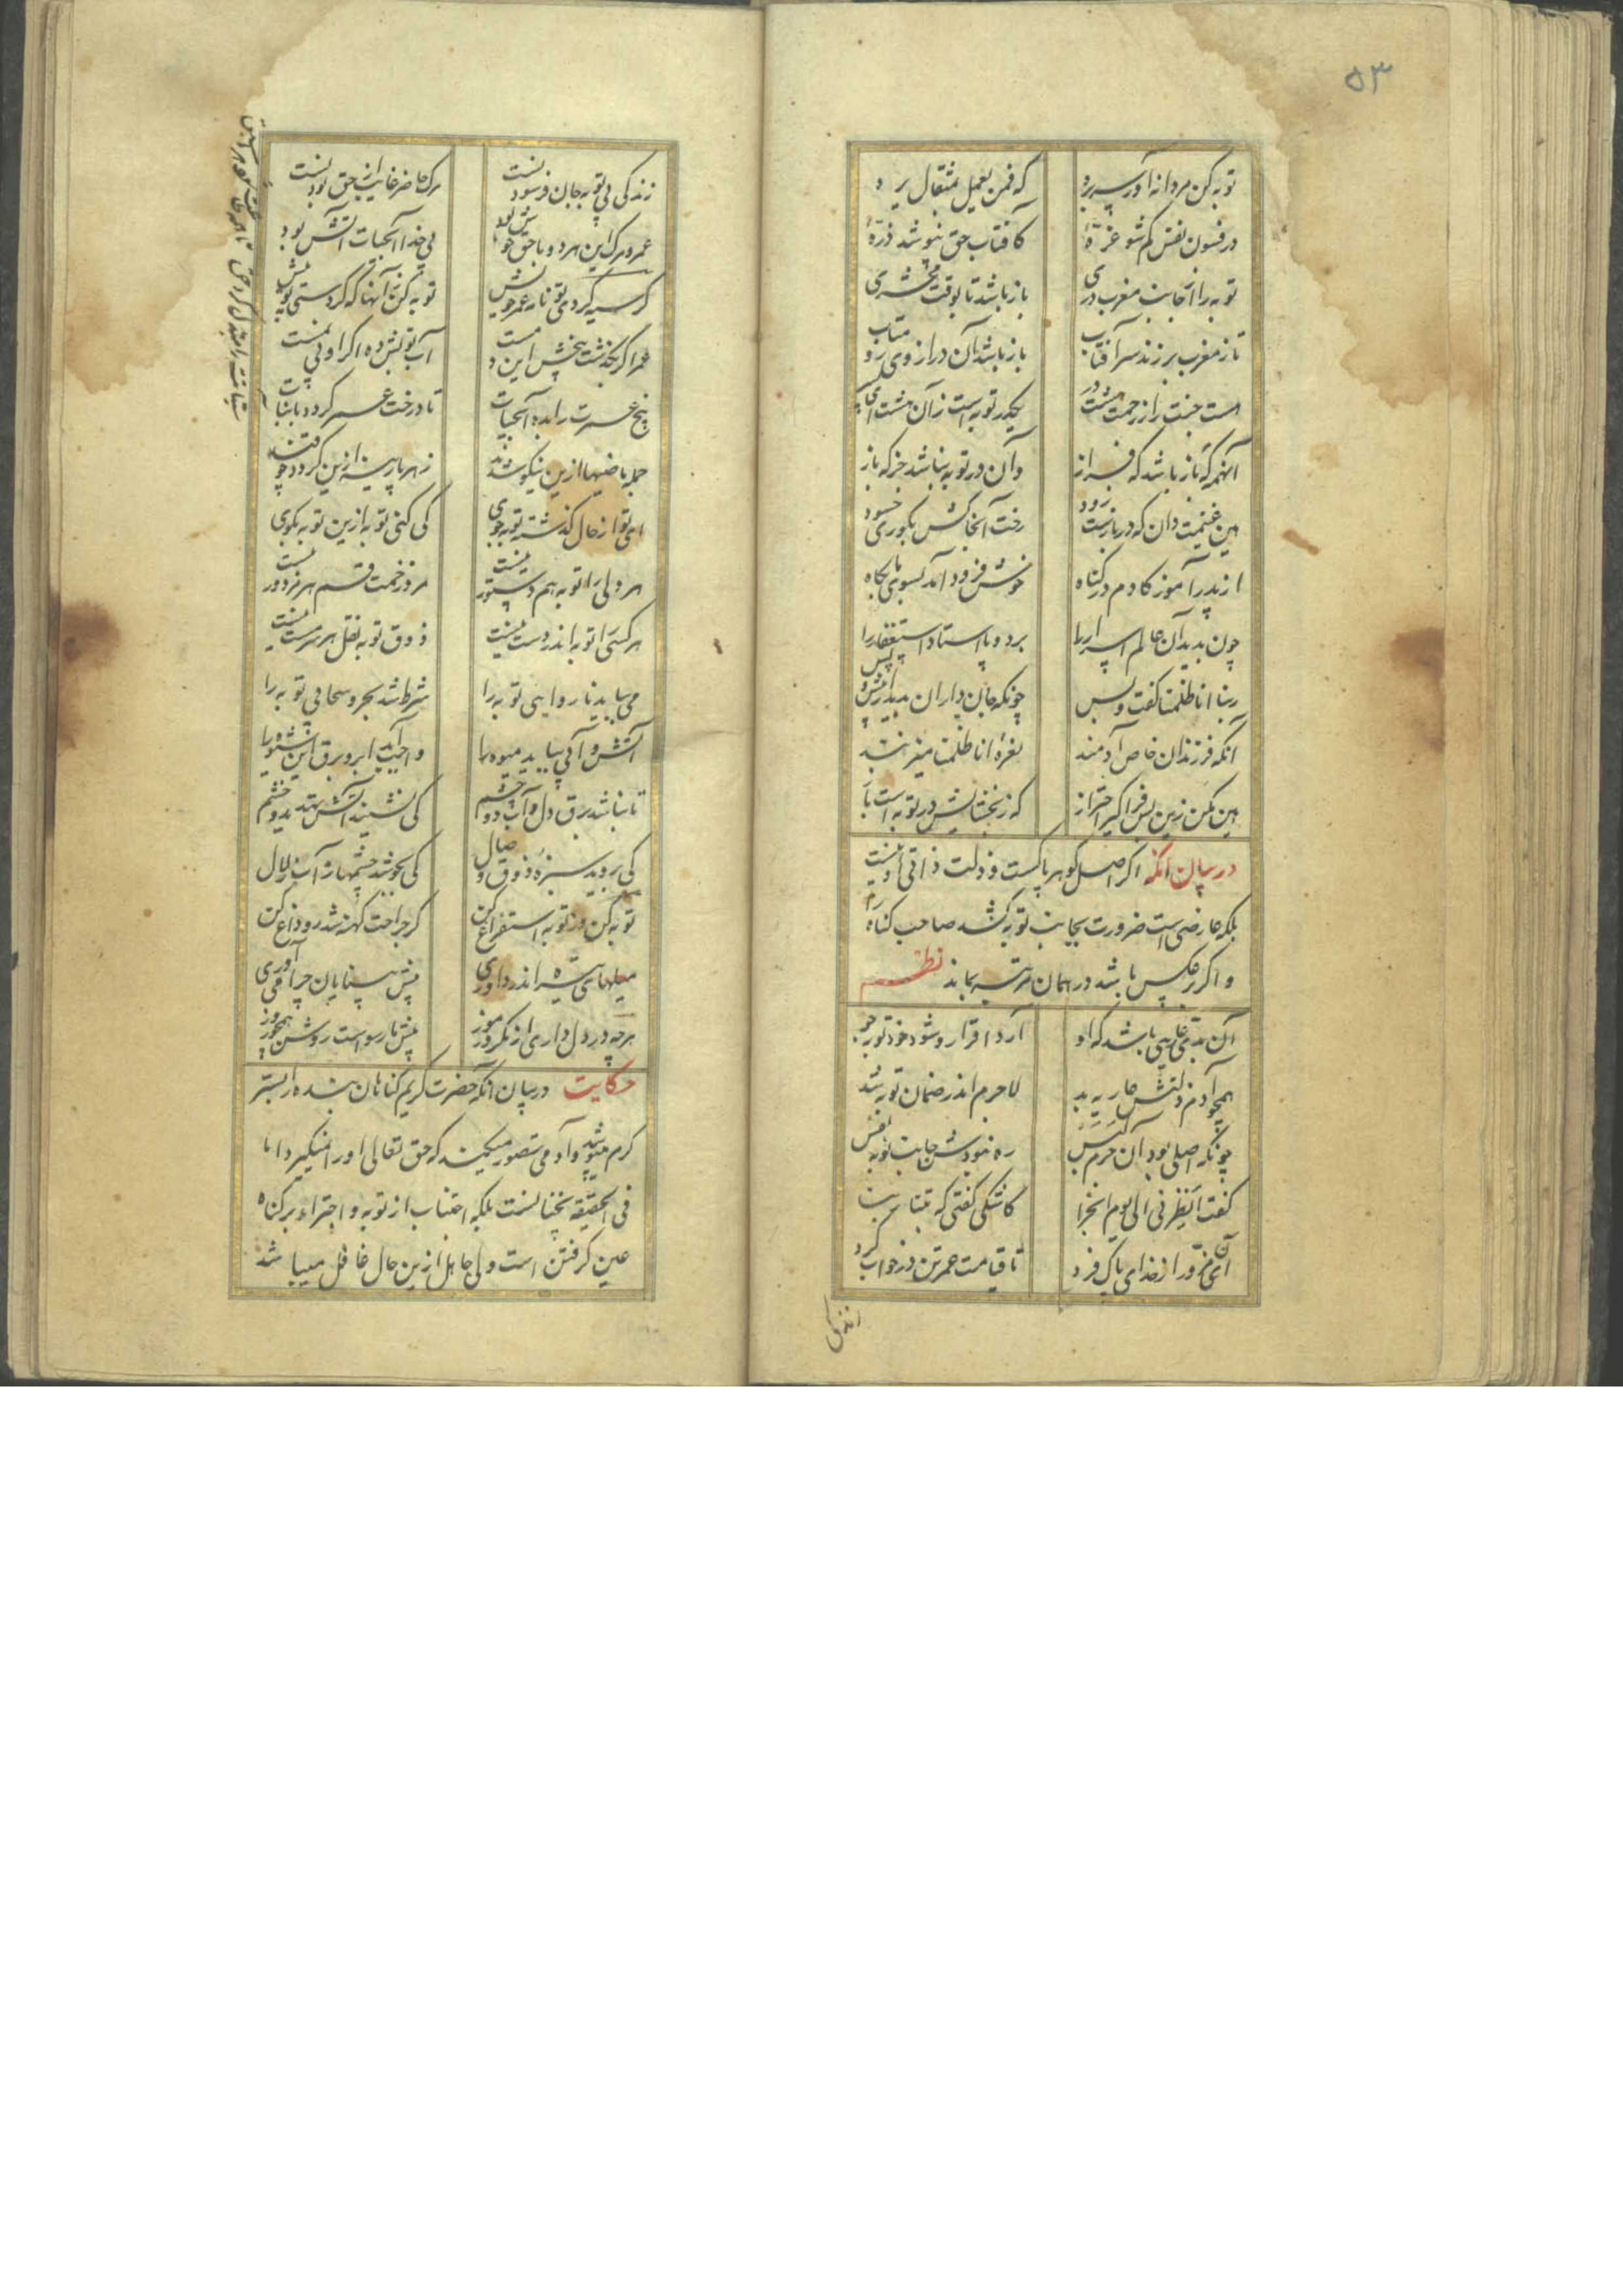 ۵۳
توبه کن مردانه سر آور بره که فمن یعمل بمثقال یره
در فسون نفس کم شو غرّهٔ کافتاب حق نپوشد ذرّهٔ
توبه را از جانب مغرب دری باز باشد تا بوقت محشری
تا ز مغرب بر زند سر آفتاب باز باشد آن در از وی رو متاب
هست جنت را ز رحمت هشت در یک در توبه است زان هشت ای پسر
آنهمه گه باز باشد گه فراز وان در توبه نباشد جز که باز
هین غنیمت دان که در بازست زود رخت آنجا کش بکوری حسود
از پدر آموز کادم در گناه خوش فرود آمد بسوی پایگاه
چون بدید آن عالم اسرار را بر دو پا استاد استغفار را
ربنا انا ظلمنا گفت و بس چونکه جانداران بدید از پیش و پس
آنکه فرزندان خاص آدمند نفرهٔ انا ظلمنا میزنند
هین مکن زین پس فراگیر احتراز که ز بخشایش در توبه است باز
در بیان آنکه اگر اصل گوهر پاکست و ذلت ذاتی او نیست
بلکه عارضی است ضرورت بجانب توبه کشد صاحب گناه را
و اگر برعکس باشد در همان مرتبه بماند نظم
آن بدی عاریتی باشد که او آرد اقرار و شود خود توبه جو
همچو آدم ذلتش عاریه بد لاجرم اندر زمان توبه شد
چونکه اصلی بود آن جرم بلیس ره نبودش جانب توبه نفیس
گفت انظرنی الی یوم الجزا کاشکی گفتی که تبنا ربنا
آن منی مزور از خدای پاک فرد تا قیامت عمر تن درخواست کرد
زندگی
زندگی بی توبه جان فرسودنست مرگ حاضر غایب از حق بودنست
عمر و مرگ این هر دو با حق خوش بود بی خدا آبحیات آتش بود
گر سیه کردی تو نامه عمر خویش توبه کن زانها که کردستی تو پیش
عمر اگر بگذشت بیخش این دمست آب توبش ده اگر او بی نمست
بیخ عمرت را بده آبحیات تا درخت عمر گردد با نبات
جمله ماضیها ازین نیکو شوند زهر پارینه ازین گردد چو قند
ای تو از حال گذشته توبه جوی کی کنی توبه ازین توبه بگوی
هر دلی را توبه هم دستور نیست مزد رحمت قسم هر مزدور نیست
هر کسی را توبه اندر دست نیست ذوق توبه نقل هر سرمست نیست
می بباید تاب و آبی توبه را شرط شد برق و سحابی توبه را
آتش و آبی بباید میوه را واجب آید ابر و برق این شیوه را
تا نباشد برق دل و آب دو چشم کی نشیند آتش تهدید و خشم
کی بروید سبزهٔ ذوق وصال کی بجوشد چشمها ز آب زلال
توبه کن وز توبه استفراغ کن گر جراحت کهنه شد رو داغ کن
میلهای سیه اندر داوری پیش بینایان چرا می آوری
هر چه در دل داری از مکر و رموز پیش ما رسواست روشن همچو روز
حکایت در بیان آنکه حضرت کریم گناهان بنده را بستر
کرم میپوشد و آدمی تصور میکند که حق تعالی او را نمیگیرد اما
فی الحقیقة نچنانست بلکه اجتناب از توبه و اجتراء بر گناه
عین گرفتن است ولی جاهل ازین حال غافل میباشد